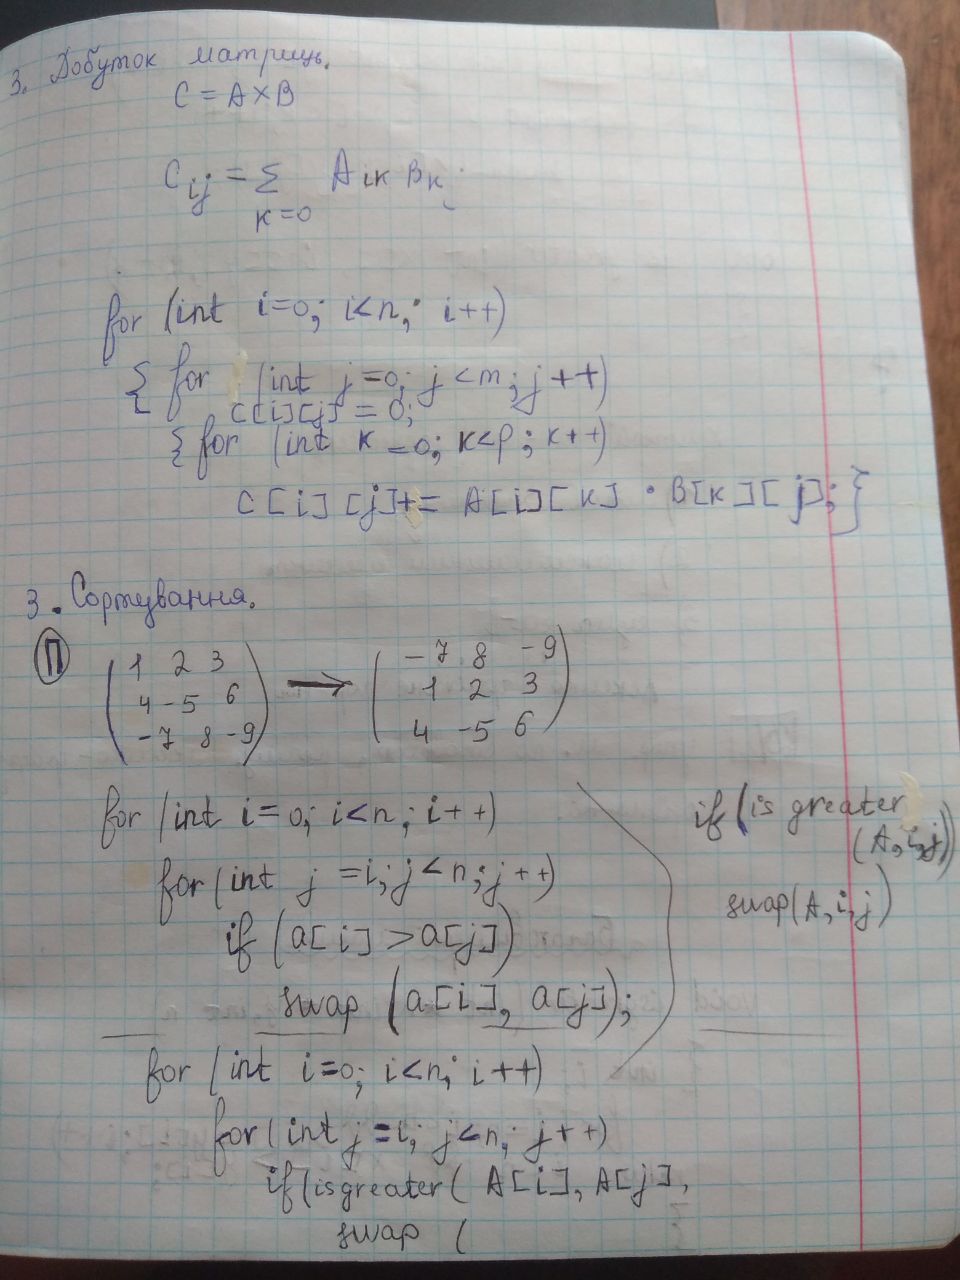 3. Добуток матриць.
C = A×B
C ij = Σ A ik B k
k=0
for (int i=0; i<n; i++)
{ for (int j=0; j<m; j++)
C[i][j] = 0;
{ for (int k=0; k<p; k++)
C[i][j]+= A[i][k] · B[k][j]; }
3. Сортування.
П
1 2 3 → -7 8 -9
4 -5 6 -1 2 3
-7 8 -9 4 -5 6
for (int i=0; i<n; i++)
for (int j=i; j<n; j++)
if (a[i] > a[j])
swap (a[i], a[j]);
if (is greater
(A, i, j))
swap(A, i, j)
for (int i=0; i<n; i++)
for (int j=i; j<n; j++)
if (isgreater( A[i], A[j],
swap (